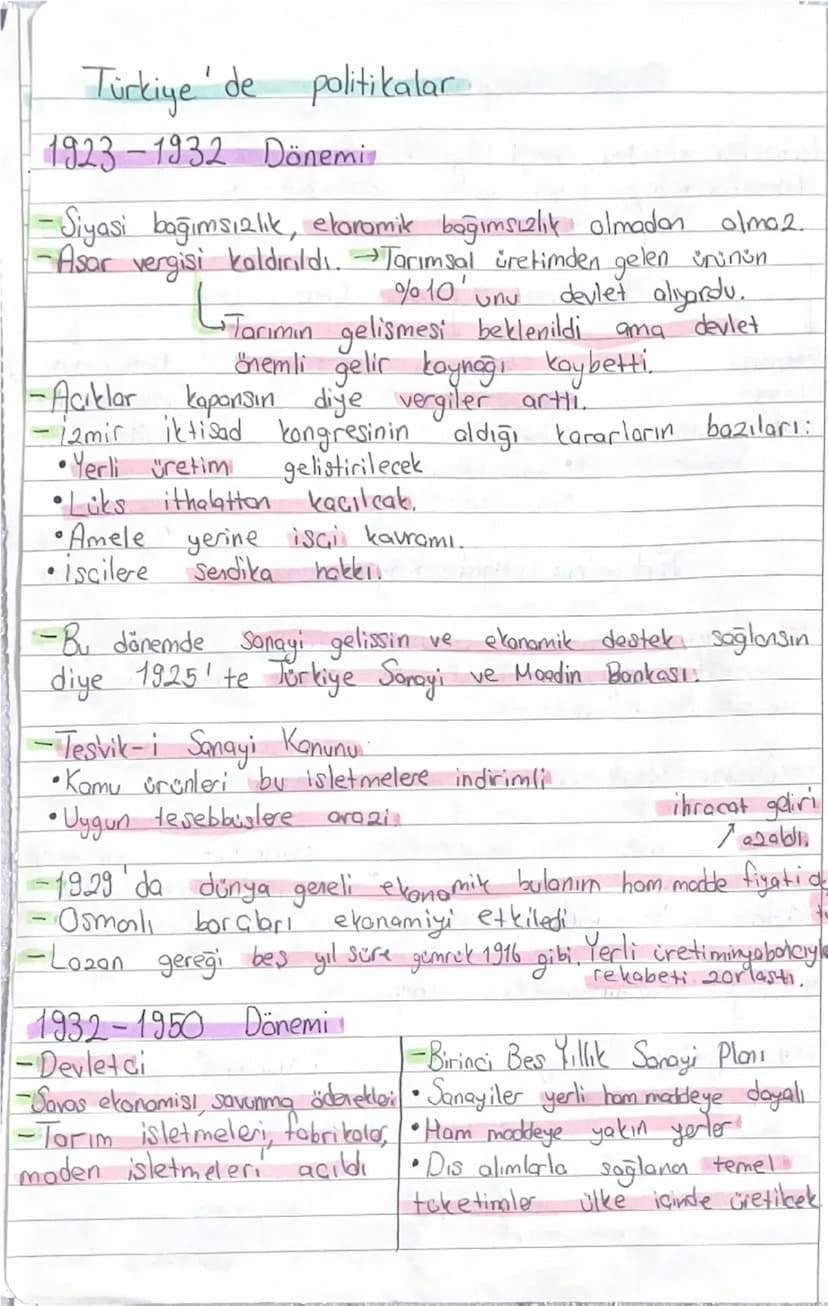 Türkiye'de politikalar
1923-1932 Dönemi
- Siyasi bağımsızlık, ekonomik bağımsızlık olmadan olmaz.
- Aşar vergisi kaldırıldı. → Tarımsal üretimden gelen ürünün
%10'unu devlet alıyordu.
Tarımın gelismesi beklenildi ama devlet
önemli gelir kaynağı kaybetti.
- Acıklar kapansın diye vergiler arttı.
- izmir iktisad kongresinin aldığı kararların bazıları:
• Yerli üretim gelistirilecek
• Lüks ithalattan kacılcak.
• Amele yerine isci kavramı.
• iscilere sendika hakkı.
- Bu dönemde sanayi gelissin ve ekonomik destek sağlansın
diye 1925'te Türkiye Sanayi ve Maadin Bankası.
- Tesvik-i Sanayi Kanunu
• Kamu ürünleri bu isletmelere indirimli
• Uygun tesebbuslere arazi
ihracat geliri
↗ azaldı.
- 1929'da dünya geneli ekonomik bulanım ham madde fiyatı
- Osmanlı borcları ekonamiyi etkiledi
- Lozan gereği bes yıl süre gümrük 1916 gibi. Yerli üretimin
rekabeti zorlastı.
1932-1950 Dönemi
- Devletci
- Savas ekonomisi, savunma ödenekleri
- Tarım isletmeleri, fabrikalar,
maden isletmeleri acıldı
- Birinci Bes Yıllık Sanayi Planı
• Sanayiler yerli ham maddeye dayalı
• Ham maddeye yakın yerler
• Dıs alımlarla sağlanan temel
tüketimler ülke içinde üretilcek